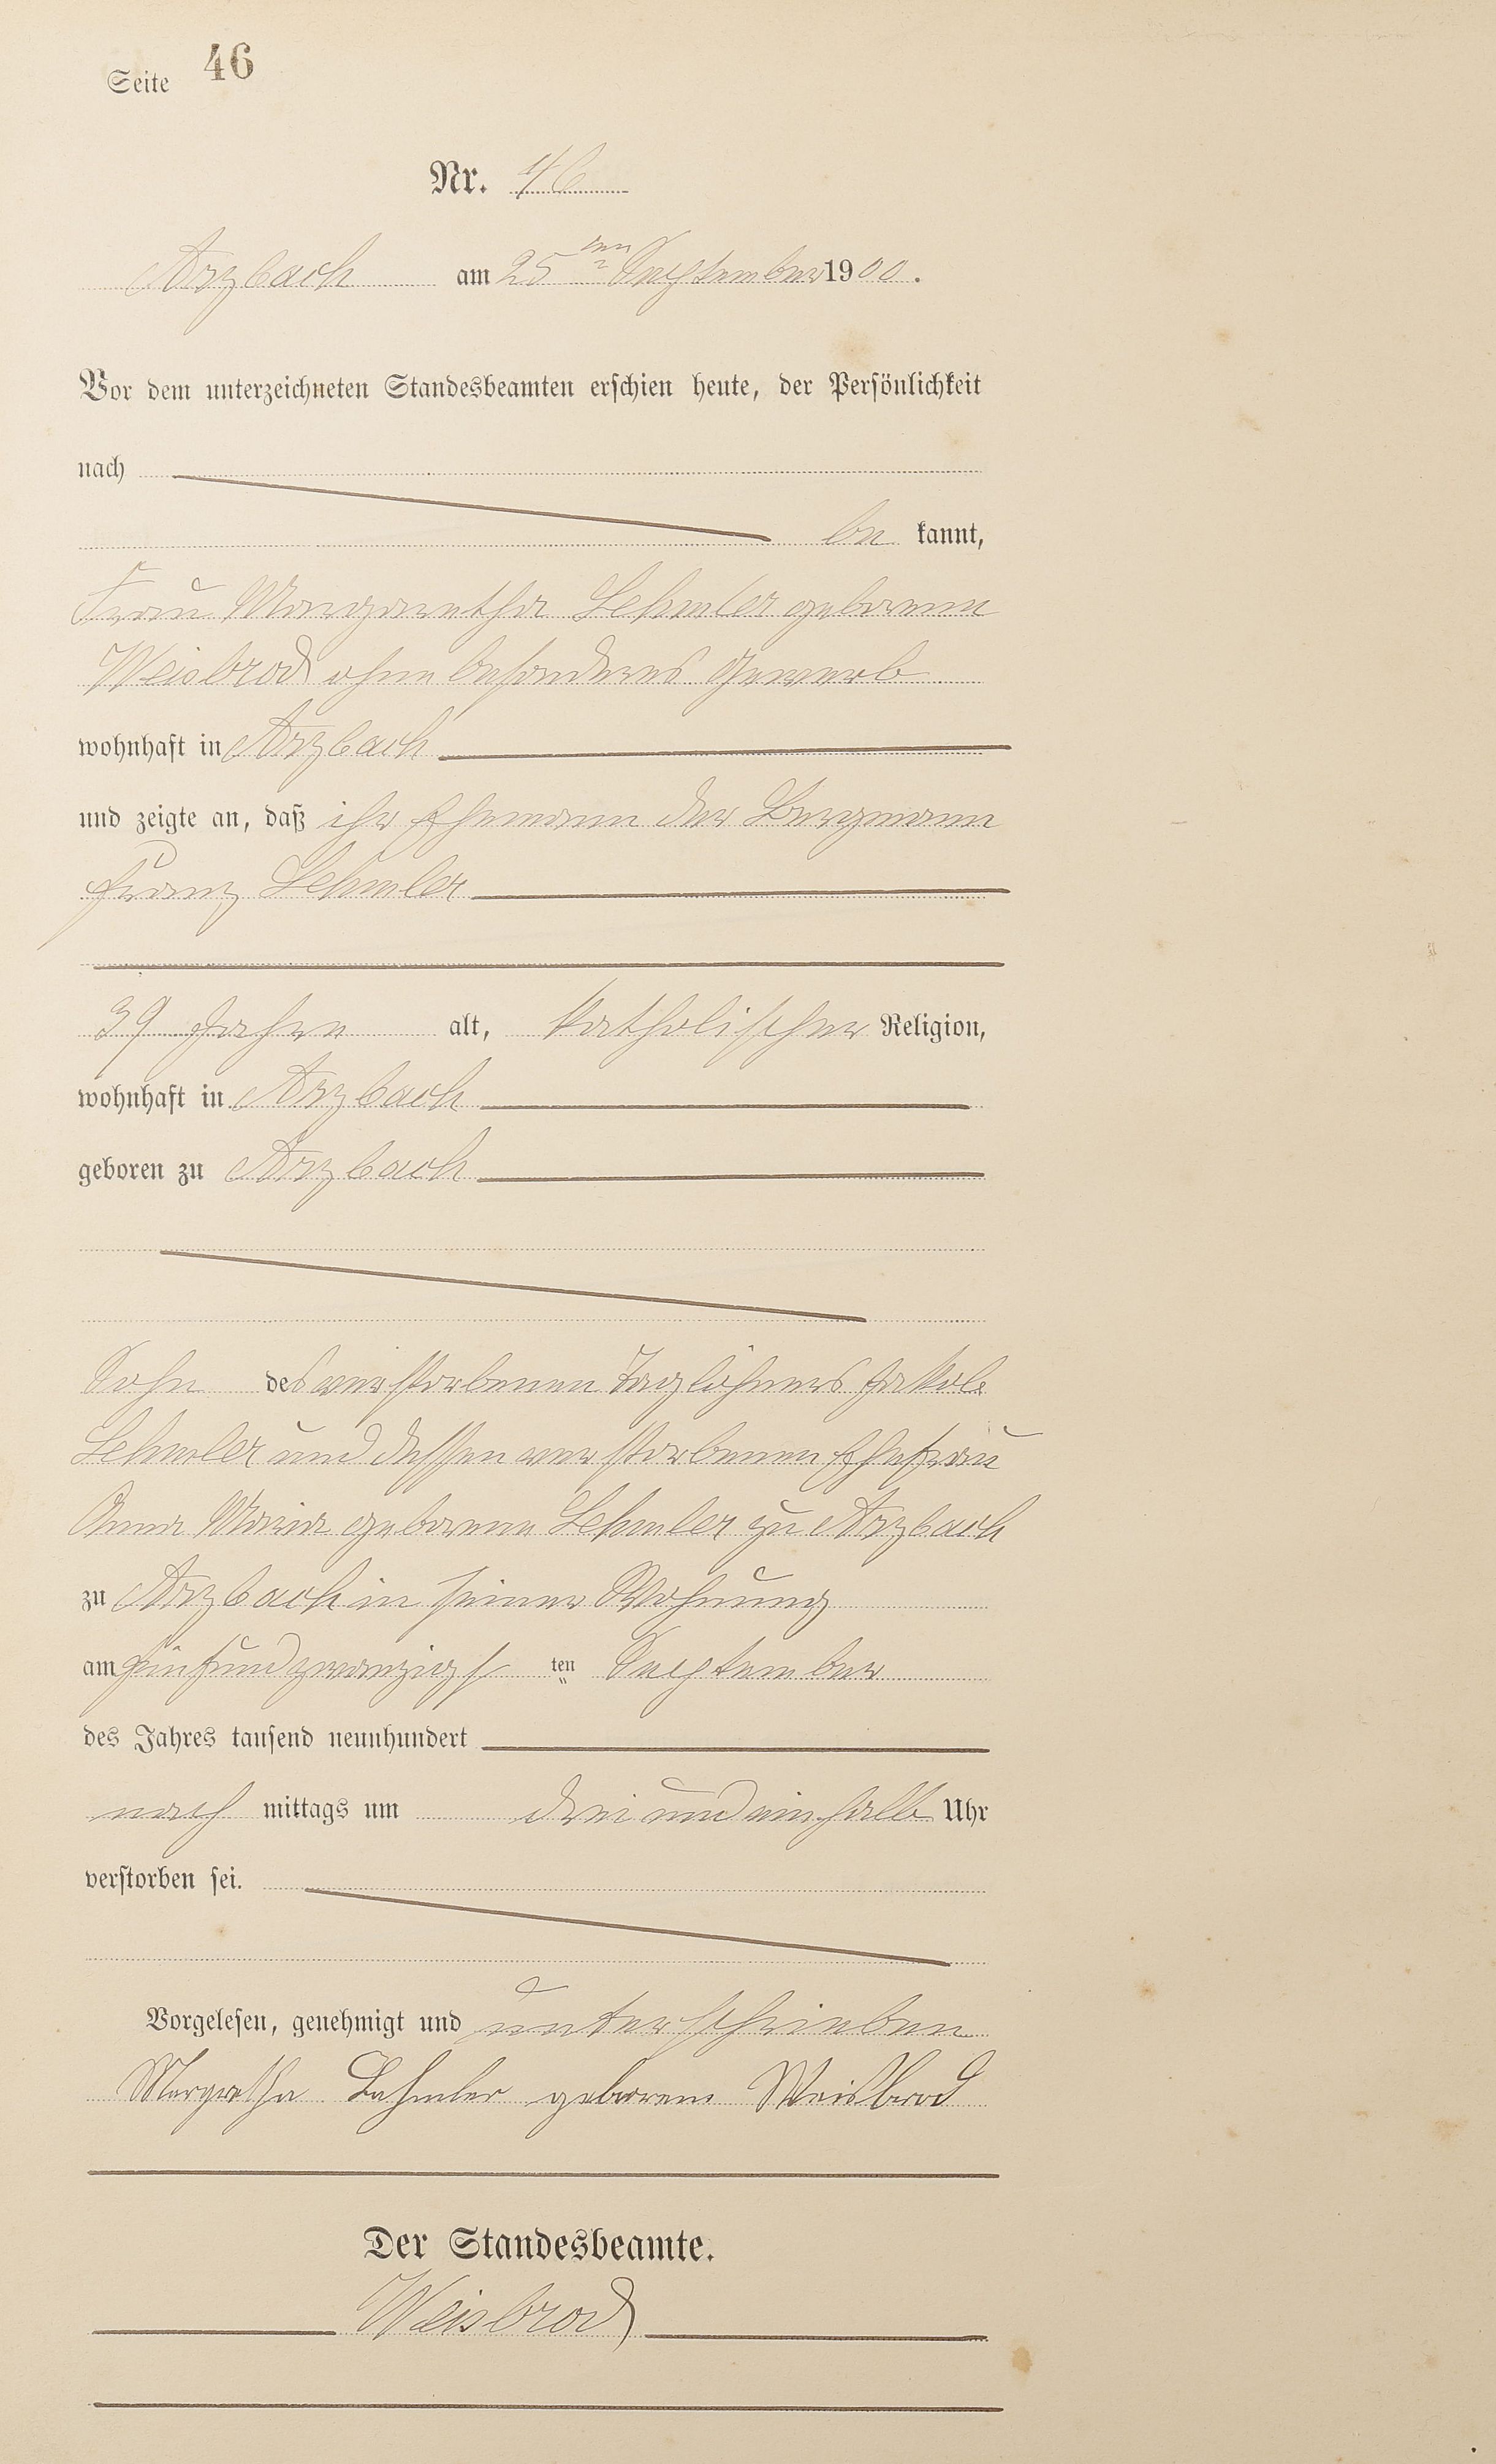 Seite 46
Nr. 46
Arzbach am 25ten September 1900.
Vor dem unterzeichneten Standesbeamten erschien heute, der Persönlichkeit
nach
be kannt,
Frau Margaretha Lehmler geborene
Weisbrod ohne besonderes Gewerb
wohnhaft in Arzbach
und zeigte an, daß ihr Ehemann der Bergmann
Franz Lehmler
39 Jahre alt, katholischer Religion,
wohnhaft in Arzbach
geboren zu Arzbach
Sohn des verstorbenen Taglöhners Jakob
Lehmler und dessen verstorbenen Ehefrau
Anna Maria geborene Lehmler zu Arzbach
zu Arzbach in seiner Wohnung
am fünfundzwanzigs ten September
des Jahres tausend neunhundert
nach mittags um drei und einhalb Uhr
verstorben sei.
Vorgelesen, genehmigt und unterschrieben
Margretha Lehmler geborene Weisbrod
Der Standesbeamte.
Weisbrod